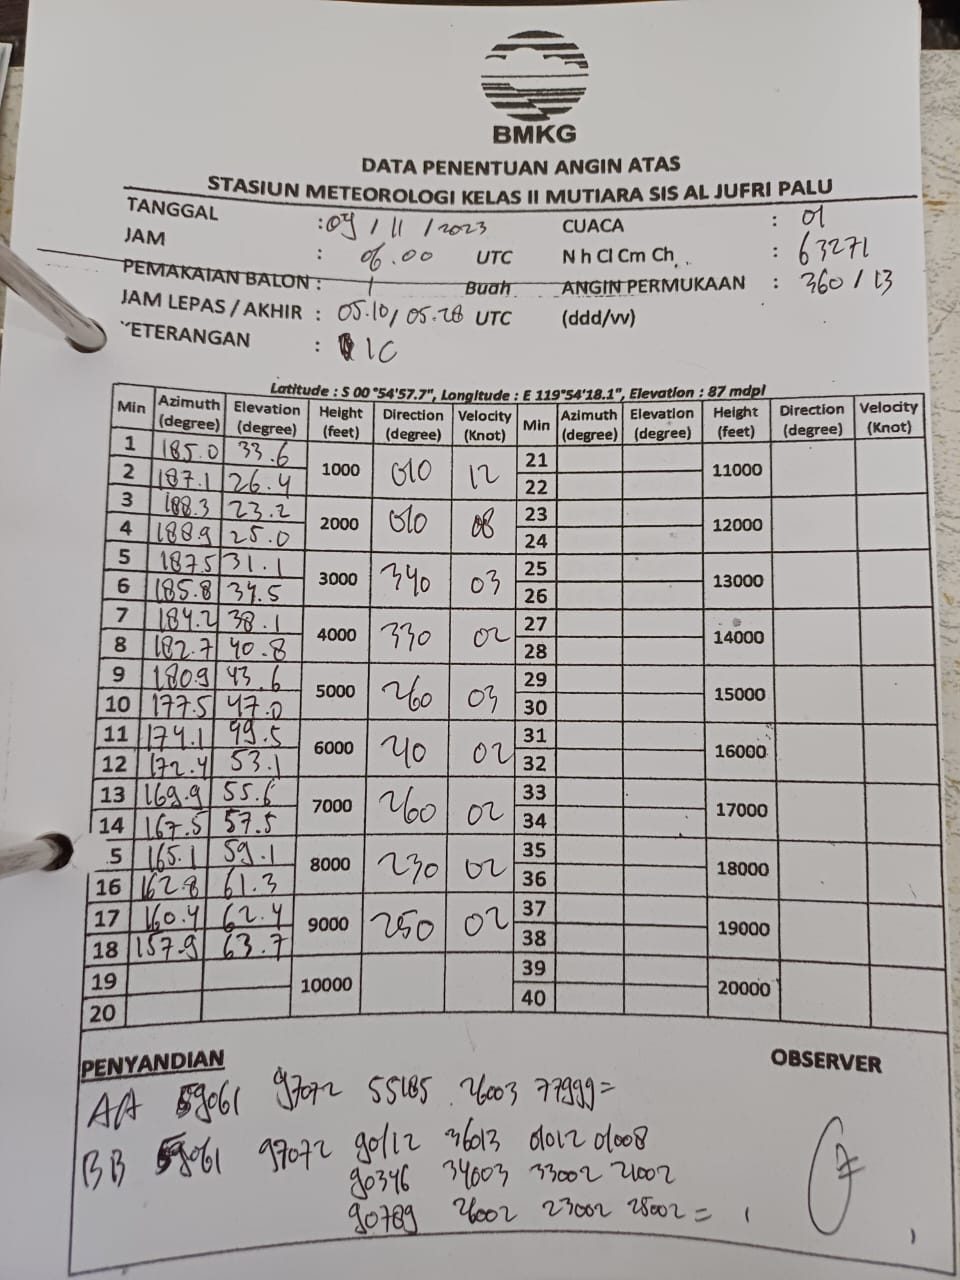 BMKG
DATA PENENTUAN ANGIN ATAS
STASIUN METEOROLOGI KELAS II MUTIARA SIS AL JUFRI PALU
TANGGAL : 09 / 11 / 2023 CUACA : 01
JAM : 06.00 UTC N h Cl Cm Ch : 63271
PEMAKAIAN BALON : 1 Buah ANGIN PERMUKAAN : 360 / 13
JAM LEPAS / AKHIR : 05.10 / 05.28 UTC (ddd/vv)
ETERANGAN : 1C
Latitude : S 00°54'57.7", Longitude : E 119°54'18.1", Elevation : 87 mdpl
Min Azimuth (degree) Elevation (degree) Height (feet) Direction (degree) Velocity (Knot) Min Azimuth (degree) Elevation (degree) Height (feet) Direction (degree) Velocity (Knot)
1 185.0 33.6 1000 010 12 21 11000
2 187.1 26.4 22
3 188.3 23.2 2000 010 08 23 12000
4 188.9 25.0 24
5 187.5 31.1 3000 340 03 25 13000
6 185.8 34.5 26
7 184.2 38.1 4000 330 02 27 14000
8 182.7 40.8 28
9 180.9 43.6 5000 260 03 29 15000
10 177.5 47.0 30
11 174.1 49.5 6000 210 02 31 16000
12 172.4 53.1 32
13 169.9 55.6 7000 260 02 33 17000
14 167.5 57.5 34
5 165.1 59.1 8000 230 02 35 18000
16 162.8 61.3 36
17 160.4 62.4 9000 250 02 37 19000
18 157.9 63.7 38
19 10000 39 20000
20 40
PENYANDIAN OBSERVER
AA 59061 97072 55185 26003 77999=
BB 59061 97072 90/12 36013 01012 01008
90346 34003 33002 21002
90789 26002 23002 25002 =